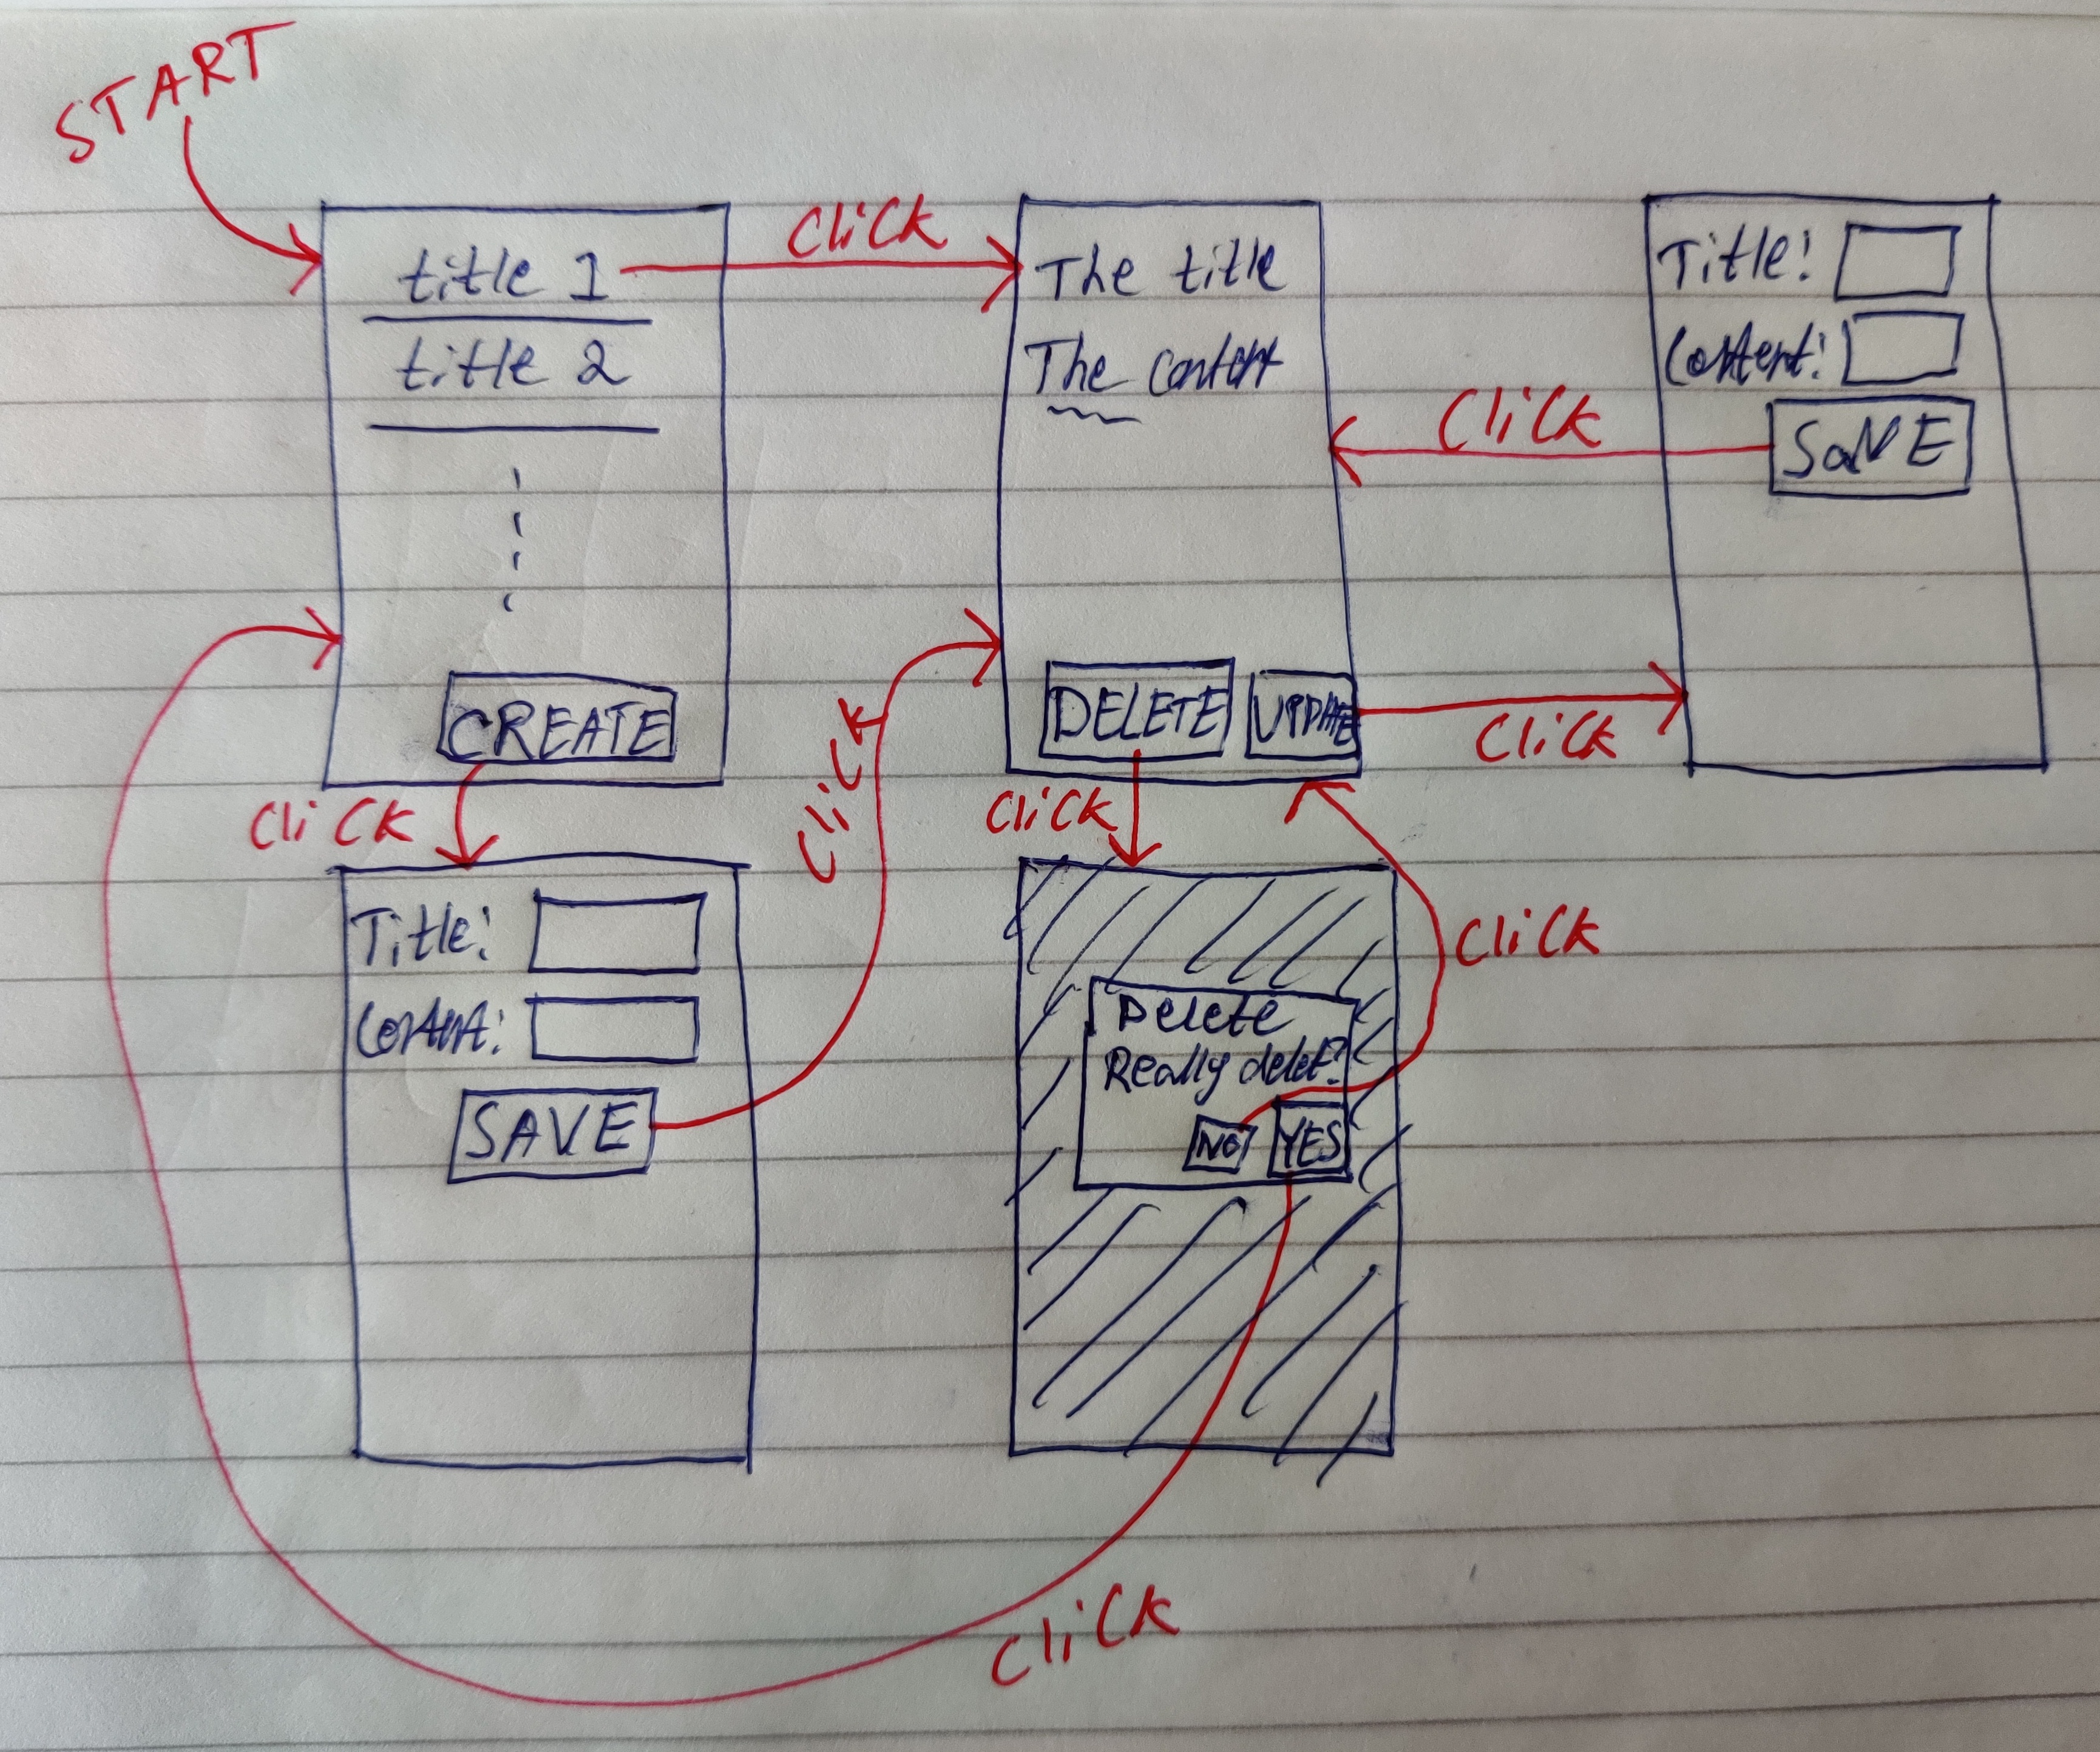 START
title 1
title 2
CREATE
CliCK
CliCK
The title
The content
DELETE
UPDATE
CliCK
Title:
Content:
SaVE
CliCK
CliCK
Title:
Content:
SAVE
CliCK
CliCK
Delete
Really delet?
NO
YES
CliCK
CliCK